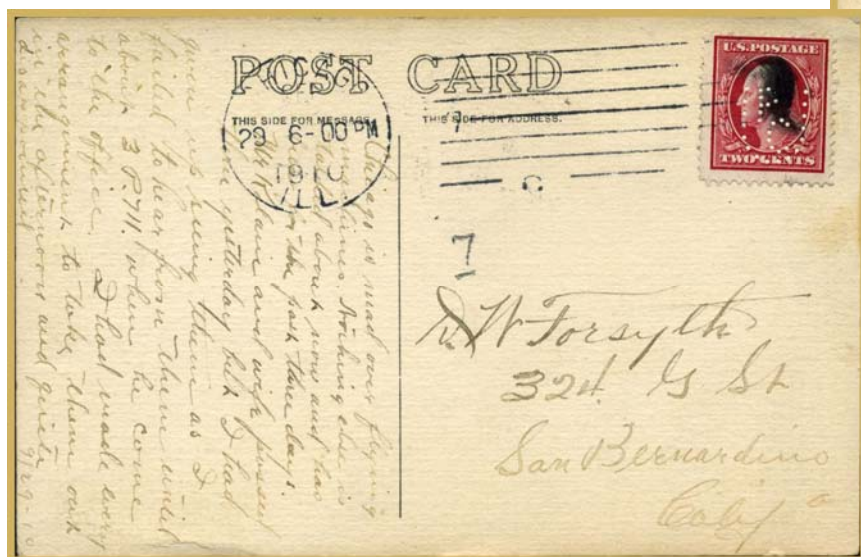 POST CARD
THIS SIDE FOR MESSAGE.
THIS SIDE FOR ADDRESS.
U.S. POSTAGE
TWO CENTS
29 6-00 PM
1910
ILL.
C
7
W Forsyth
324 G St
San Bernardino
Calif
Chicago is mad over flying
machines. Nothing else is
about now and has
the past three days.
and wife passed
yesterday but I had
given up seeing them as I
failed to hear from them until
about 3 P.M. when he come
to the office. I had made every
arrangement to take them out
in the afternoon and quite
9/29-10